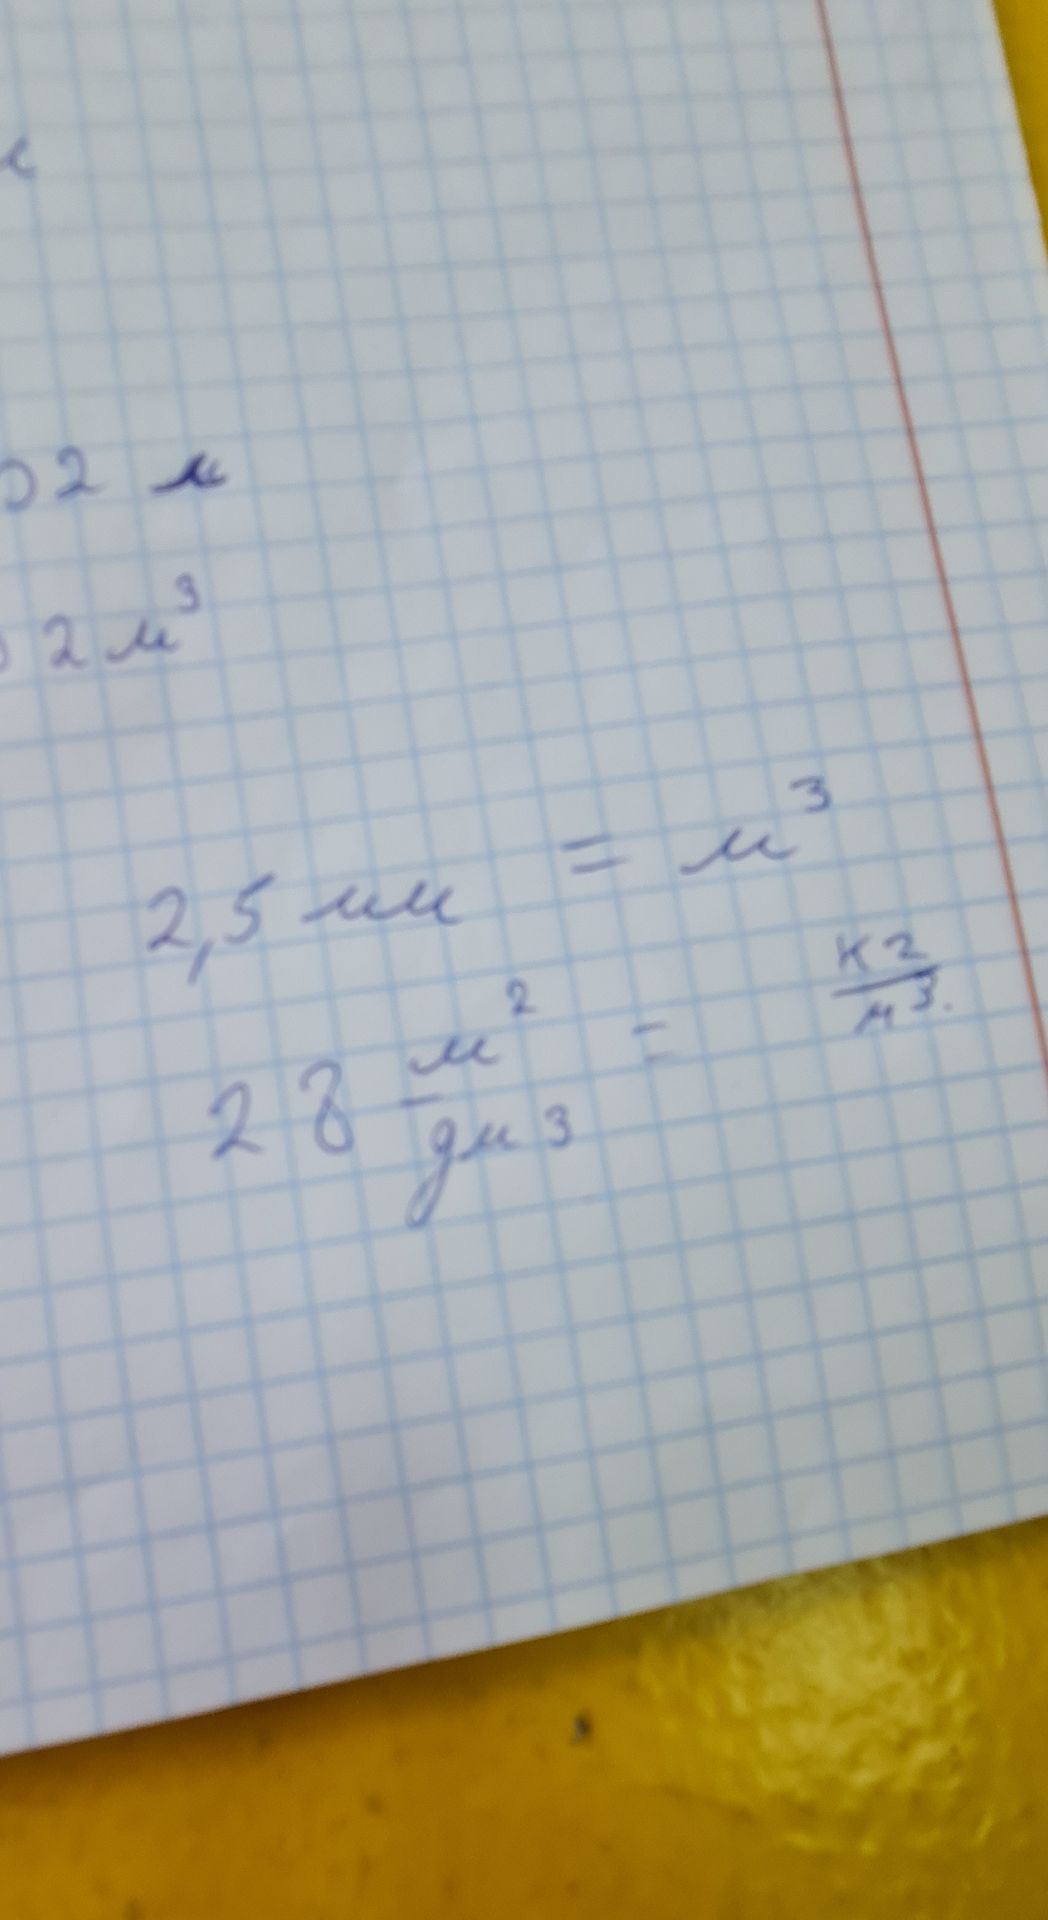 2 м
2 м³
2,5 мм = м³
28 м²/дм3 = кг/м³.